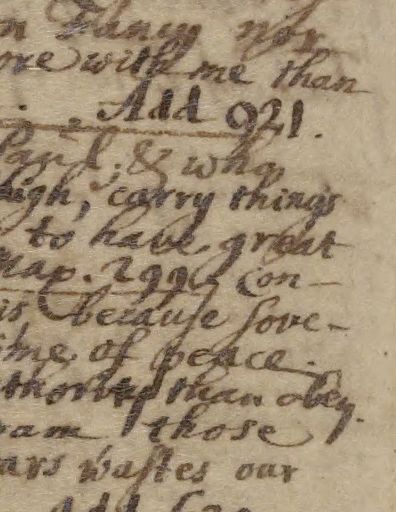 Fancy nor
ore with me than
Add 921.
Paid; & who
high, carry things
to have great
Max. 299. Con-
is because sove-
ime of peace.
thority than obey.
ram those
ars wastes our
Add